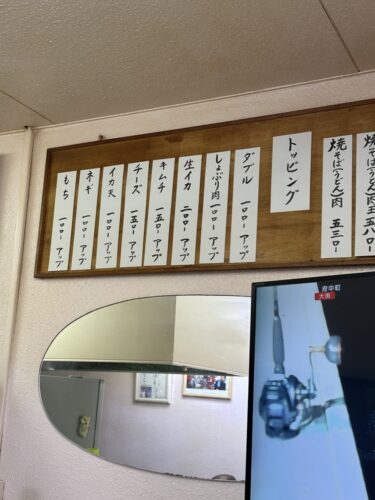 焼そば(うどん)肉玉 五八〇-
焼そば(うどん)肉 五三〇-
トッピング
ダブル 一〇〇- アップ
しょぶり肉 一〇〇- アップ
生イカ 二〇〇- アップ
キムチ 一五〇- アップ
チーズ 一五〇- アップ
イカ天 一〇〇- アップ
ネギ 一〇〇- アップ
もち 一〇〇- アップ
府中町
大雨